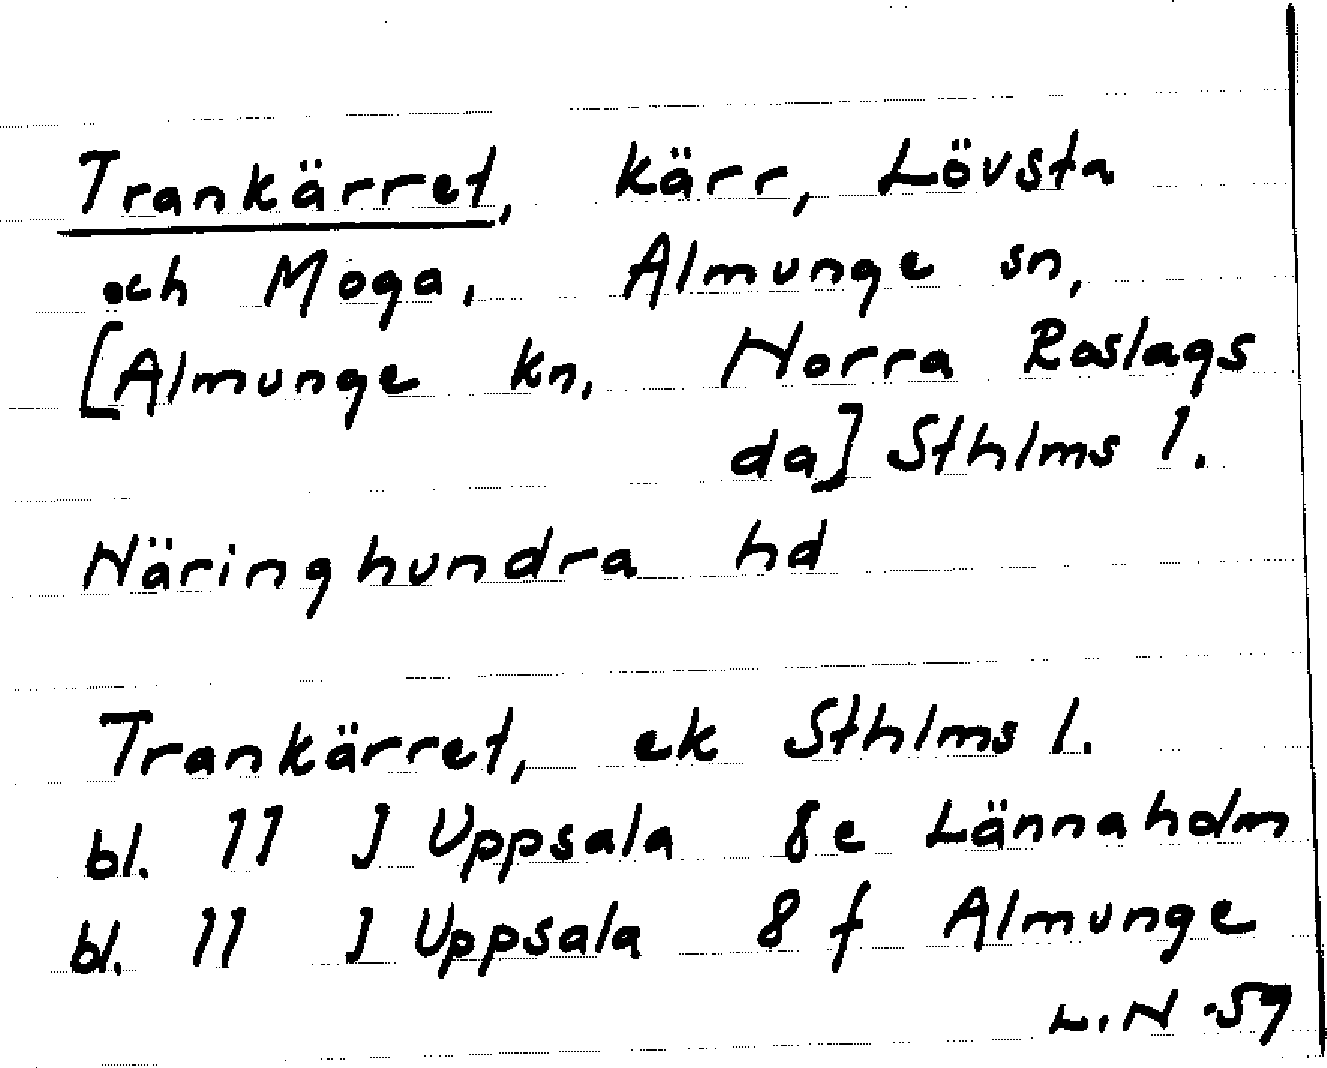 Trankärret, kärr, Lövsta
och Moga, Almunge sn,
[Almunge kn, Norra Roslags
da] Sthlms l.
Näringhundra hd
Trankärret, ek Sthlms l.
bl. 11 J Uppsala 8e Lännaholm
bl. 11 J Uppsala 8 f Almunge
L.N -59